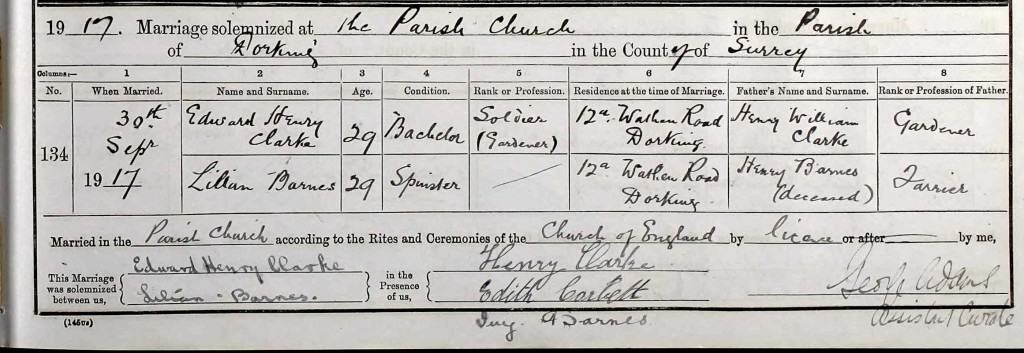 1917. Marriage solemnized at the Parish Church in the Parish
of Dorking in the County of Surrey
Columns:— 1 2 3 4 5 6 7 8
No. When Married. Name and Surname. Age. Condition. Rank or Profession. Residence at the time of Marriage. Father's Name and Surname. Rank or Profession of Father.
134
30th Sepr 1917
Edward Henry
Clarke
29
Bachelor
Soldier
(Gardener)
12a. Wathen Road
Dorking.
Henry William
Clarke
Gardener
Lilian Barnes
29
Spinster
12a Wathen Road
Dorking.
Henry Barnes
(deceased)
Farrier
Married in the Parish Church according to the Rites and Ceremonies of the Church of England by licence or after by me,
This Marriage was solemnized between us,
Edward Henry Clarke
Lilian Barnes.
in the Presence of us,
Henry Clarke
Edith Corbett
A Barnes
Adams
Assistant Curate